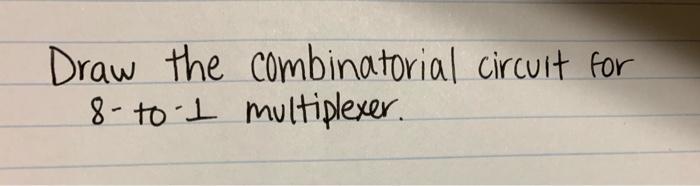 Draw the combinatorial circuit for
8-to-1 multiplexer.